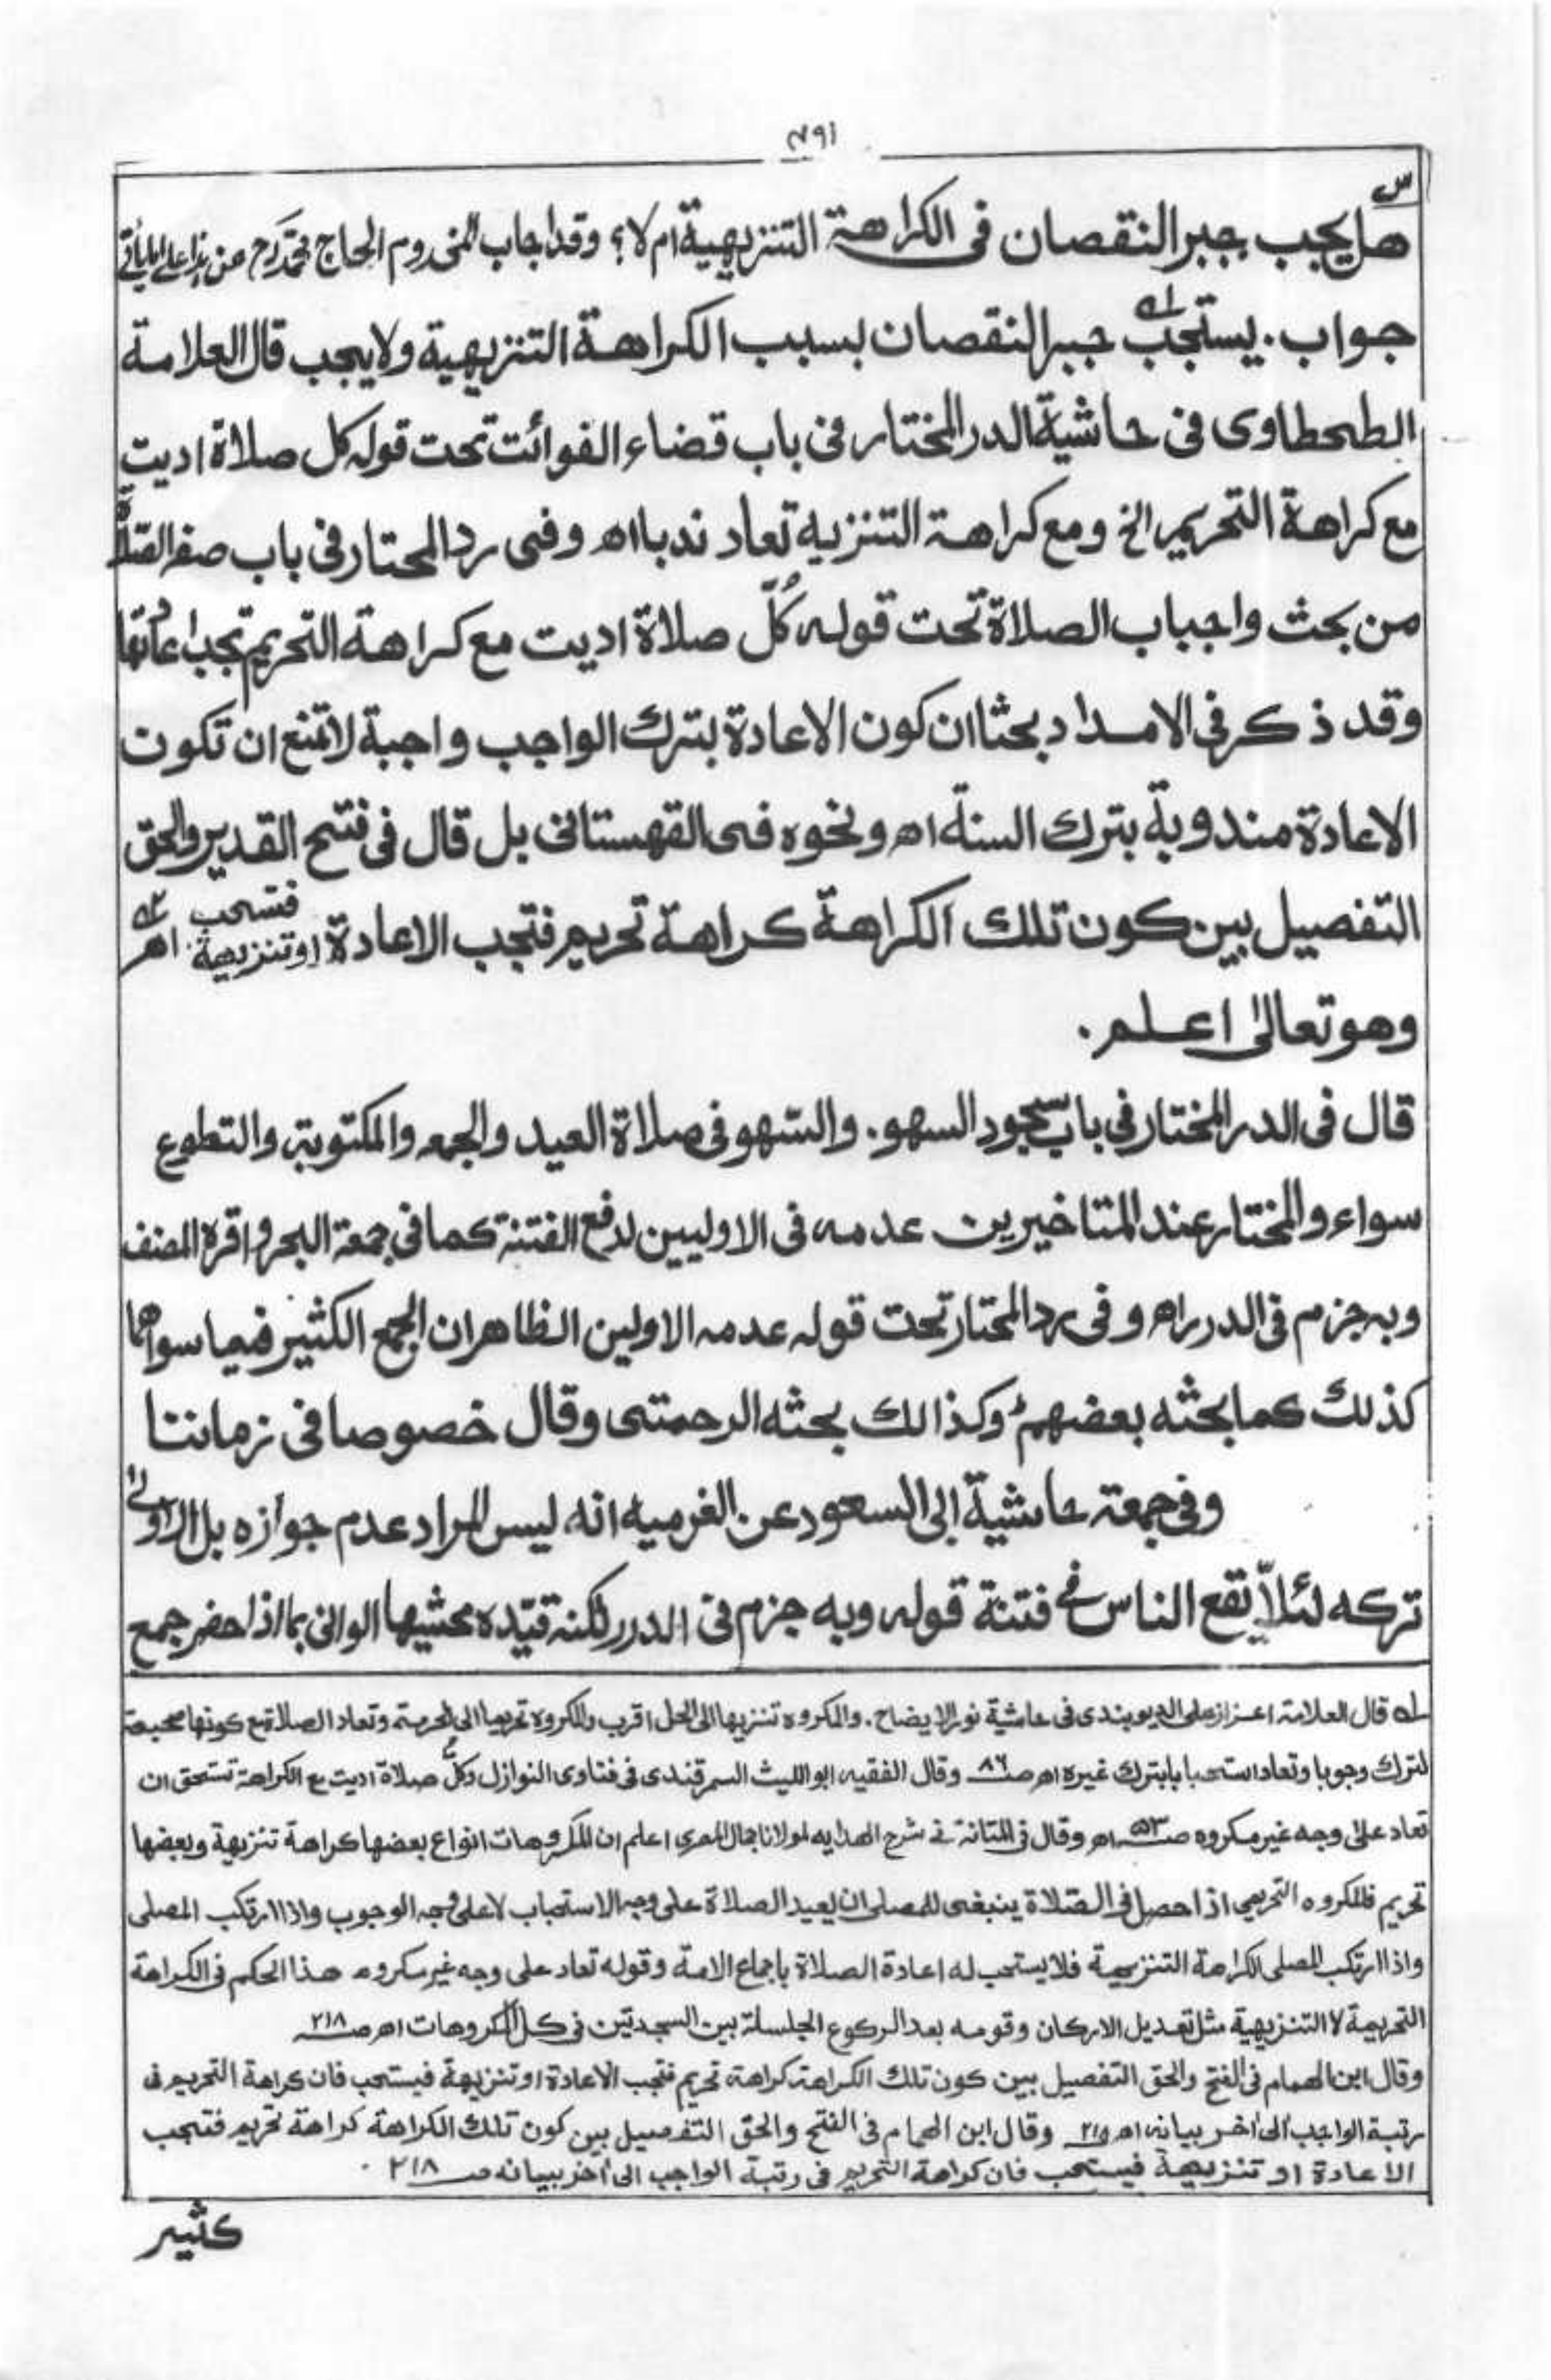 س
هل يجب جبر النقصان فى الكراهة التنزيهية ام لا؟ وقد اجاب المخدوم الحاج محمد
جواب. يستحب له جبر النقصان بسبب الكراهة التنزيهية ولا يجب قال العلامة
الطحطاوى فى حاشية الدر المختار فى باب قضاء الفوائت تحت قوله كل صلاة اديت
مع كراهة التحريم الخ ومع كراهة التنزيه تعاد ندبا اه وفى رد المحتار فى باب صفة الصلاة
من بحث واجباب الصلاة تحت قوله كُلّ صلاة اديت مع كراهة التحريم تجب اعادتها
وقد ذكر فى الامداد بحثا ان كون الاعادة بترك الواجب واجبة لا تمنع ان تكون
الاعادة مندوبة بترك السنة اه ونحوه فى القهستانى بل قال فى فتح القدير والحق
التفصيل بين كون تلك الكراهة كراهة تحريم فتجب الاعادة او تنزيهة فتسحب اه ٢ه
وهو تعالىٰ اعلم.
قال فى الدر المختار فى باب سجود السهو. والسّهو فى صلاة العيد والجمعه والمكتوبة والتطوع
سواء والمختار عند المتاخيرين عدمه فى الاوليين لدفع الفتنة كما فى جمعة البحر واقره المصنف
وبه جزم فى الدرر اه وفى رد المحتار تحت قوله عدمه الاولين الظاهر ان الجمع الكثير فيما سواهما
كذلك كما بحثه بعضهم وكذالك بحثه الرحمتى وقال خصوصا فى زماننا
وفى جمعة حاشية ابى السعود عن الغرميه انه ليس المراد عدم جوازه بل الاولىٰ
تركه لئلاّ يقع الناس فى فتنة قوله وبه جزم فى الدرر لكنه قيّده محشيها الوانى بما اذا حضر جمع
له قال العلامة اعزاز على الديوبندى فى حاشية نور الايضاح. والمكروه تنزيها الى الحل اقرب والمكروه تحريما الى الحرمة وتعاد الصلاة مع كونها صحيحة
لترك وجوبا وتعاد استحبابا بترك غيره اه صـ ٨٦ وقال الفقيه ابو الليث السمرقندى فى فتاوى النوازل وكلّ صلاة اديت مع الكراهة تستحق ان
تعاد على وجه غير مكروه صـ ٥٣ اه وقال فى المتانة فى شرح الهدايه لمولانا جمال اعلم ان المكروهات انواع بعضها كراهة تنزيهة وبعضها
تحريم فالمكروه التحريمي اذا حصل فى الصّلاة ينبغى للمصلى ان يعيد الصلاة على وجه الاستحباب لا على وجه الوجوب واذا ارتكب المصلى
واذا ارتكب المصلى الكراهة التنزيهية فلا يستحب له اعادة الصلاة باجماع الامة وقوله تعاد على وجه غير مكروه هذا الحكم فى الكراهة
التحريمية لا التنزيهية مثل تعديل الاركان وقومه بعد الركوع الجلسلة بين السجدتين فى كل المكروهات اه صـ ٢١٨
وقال ابن الهمام فى الفتح والحق التفصيل بين كون تلك الكراهة كراهة تحريم فتجب الاعادة او تنزيهة فيستحب فان كراهة التحريم فى
رتبة الواجب الى اٰخر بيانه اه وقال ابن الهمام فى الفتح والحق التفصيل بين كون تلك الكراهة كراهة تحريم فتجب
الاعادة او تنزيهة فيستحب فان كراهة التحريم فى رتبة الواجب الى اٰخر بيانه صـ ٢١٨.
كثير